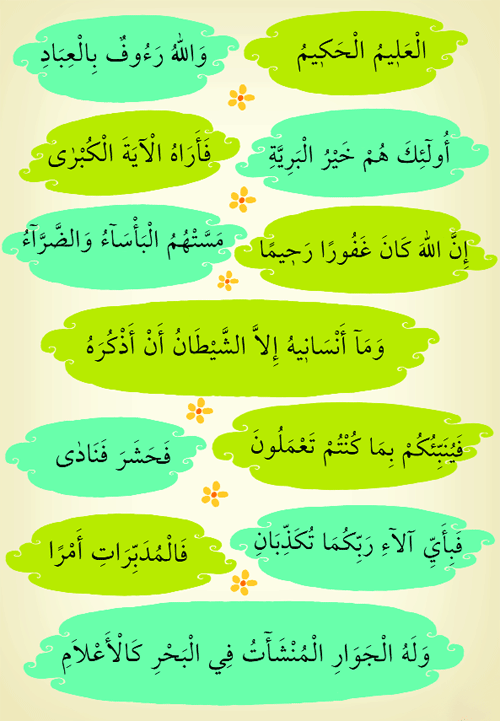 الْعَلٖيمُ الْحَكٖيمُ
وَاللهُ رَءُوفٌ بِالْعِبَادِ
أُولٰٓئِكَ هُمْ خَيْرُ الْبَرِيَّةِ
فَأَرَاهُ الْآيَةَ الْكُبْرٰى
إِنَّ اللهَ كَانَ غَفُورًا رَحٖيمًا
مَسَّتْهُمُ الْبَأْسَآءُ وَالضَّرَّآءُ
وَمَآ أَنْسَانٖيهُ إِلاَّ الشَّيْطَانُ أَنْ أَذْكُرَهُ
فَيُنَبِّئُكُمْ بِمَا كُنْتُمْ تَعْمَلُونَ
فَحَشَرَ فَنَادٰى
فَبِأَيِّ آلآءِ رَبِّكُمَا تُكَذِّبَانِ
فَالْمُدَبِّرَاتِ أَمْرًا
وَلَهُ الْجَوَارِ الْمُنْشَآٰتُ فِي الْبَحْرِ كَالْأَعْلاَمِ